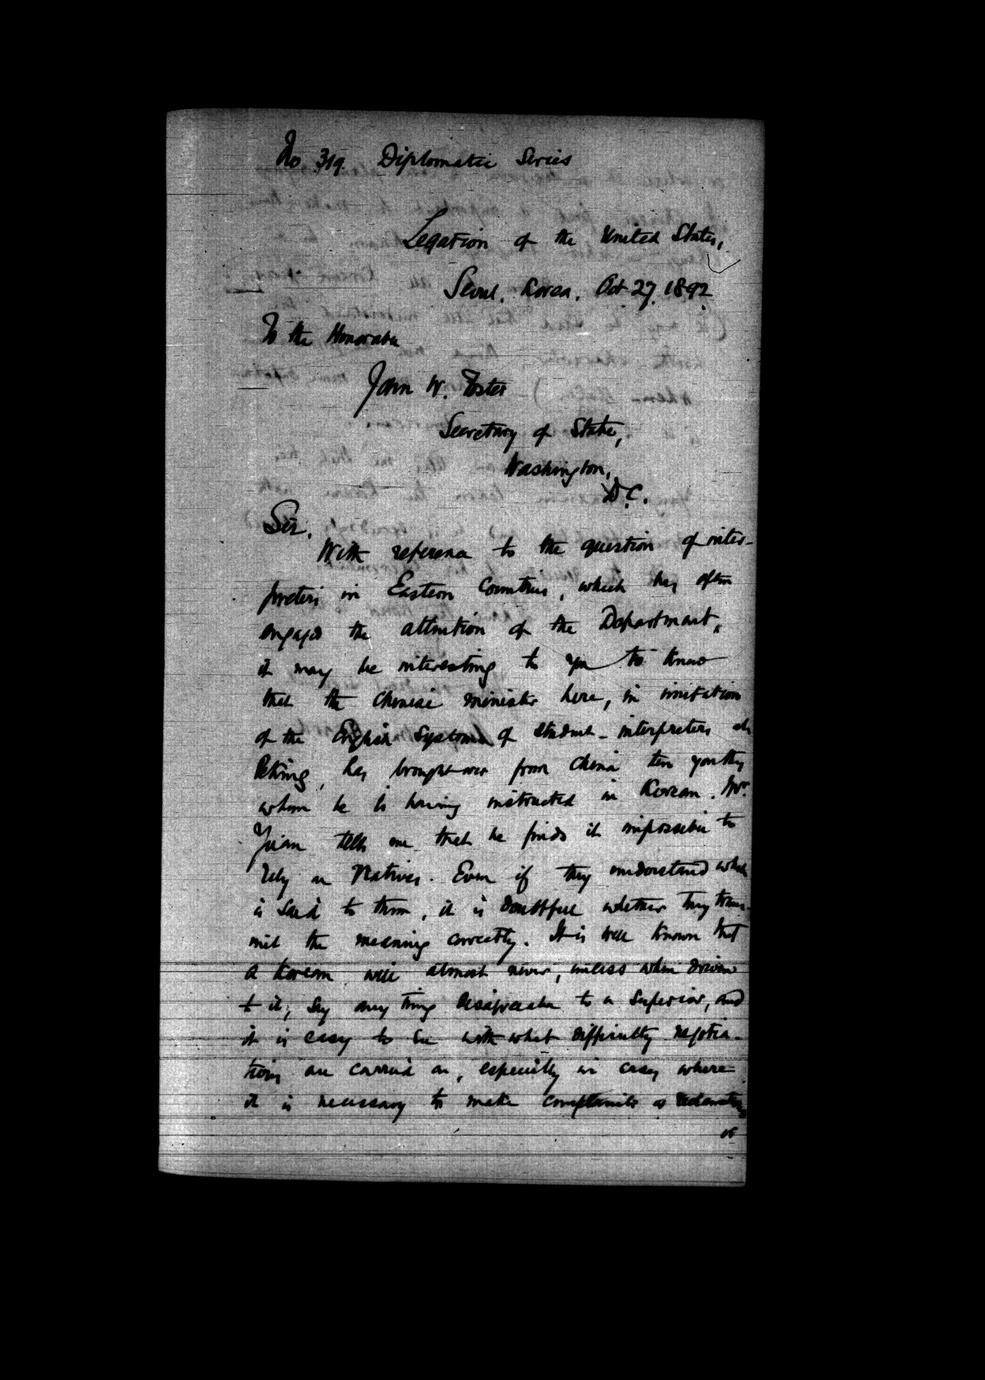 No 319. Diplomatic Series
Legation of the United States,
Seoul, Korea, Oct 27, 1892
To the Honorable
John W. Foster
Secretary of State,
Washington,
D.C.
Sir.
With reference to the question of inter-
preters in Eastern Countries, which has often
engaged the attention of the Department,
it may be interesting to you to know
that the Chinese minister here, in imitation
of the English System of student-interpreters at
Peking, has brought over from China ten youths
whom he is having instructed in Korean. Mr.
Yuan tells me that he finds it impossible to
rely on Natives. Even if they understand what
is said to them, it is doubtful whether they trans-
mit the meaning correctly. It is well known that
a Korean will almost never, unless when driven
to it, say any thing disagreeable to a Superior, and
it is easy to see with what difficulty negotia-
tions are carried on, especially in cases where
it is necessary to make complaints or
of